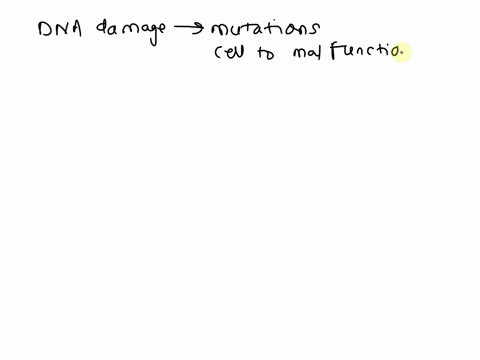 DNA damage → mutations
cell to malfunctio